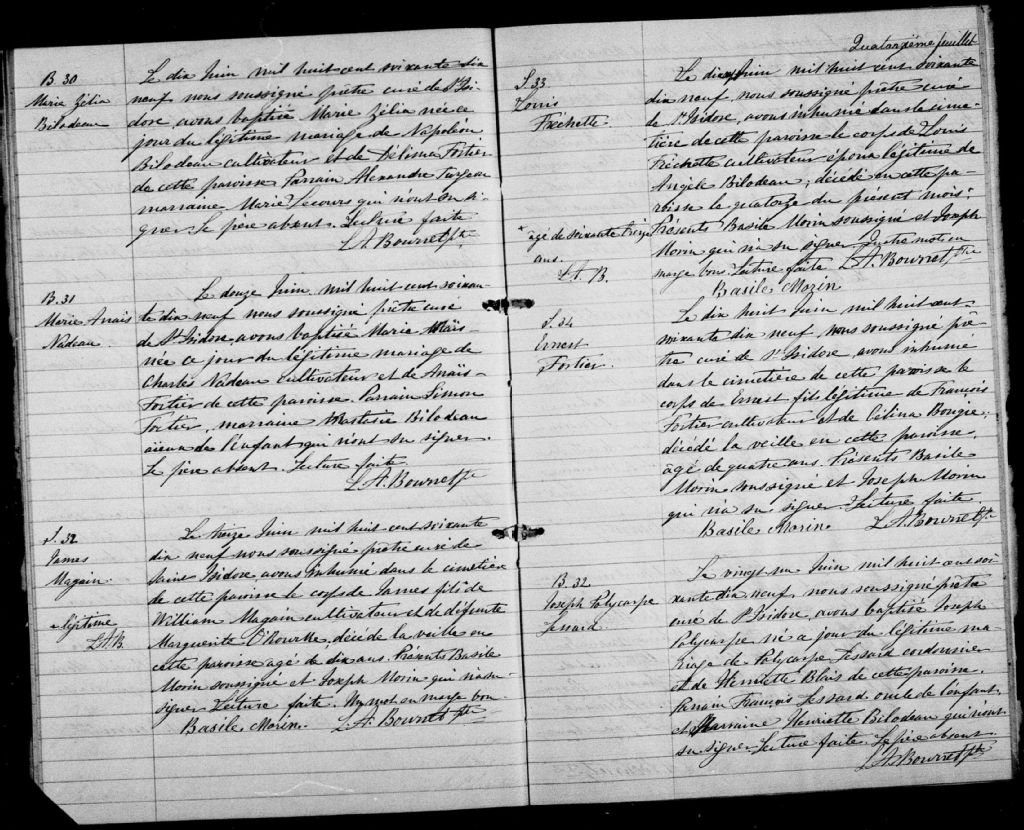 B. 30
Marie Zélia
Bilodeau
Le dix Juin mil huit cent soixante dix
neuf nous soussigné prêtre curé de St Isi-
dore, avons baptisé Marie Zélia née ce
jour du légitime mariage de Napoléon
Bilodeau cultivateur et de Délima Fortier
de cette paroisse. Parrain Alexandre Turgeon
marraine Marie Lecours qui n'ont su si-
gner. Le père absent. Lecture faite
L. A. Bourret Ptre
B. 31
Marie Anaïs
Nadeau
Le douze Juin mil huit cent soixan-
te dix neuf nous soussigné prêtre curé
de St Isidore, avons baptisé Marie Anaïs
née ce jour du légitime mariage de
Charles Nadeau cultivateur et de Anaïs
Fortier de cette paroisse. Parrain Simon
Fortier, marraine Anastasie Bilodeau
aieux de l'enfant qui n'ont su signer.
Le père absent. Lecture faite.
L. A. Bourret Ptre
S. 32
James
Magain
+ légitime
L. A. B.
Le treize Juin mil huit cent soixante
dix neuf nous soussigné prêtre curé de
Saint Isidore avons inhumé dans le cimetière
de cette paroisse le corps de James fils + de
William Magain cultivateur et de défunte
Marguerite O'Rourke, décédé la veille en
cette paroisse agé de dix ans. Présents Basile
Morin soussigné et Joseph Morin qui n'a su
signer. Lecture faite. Un mot en marge bon
Basile Morin. L. A. Bourret Ptre
Quatorzième feuillet
S. 33
Louis
Fréchette
* âgé de soixante treize
ans.
L. A. B.
Le dix Juin mil huit cent soixante
dix neuf, nous soussigné prêtre curé
de St Isidore, avons inhumé dans le cime-
tière de cette paroisse le corps de Louis
Fréchette cultivateur époux légitime de
Angèle Bilodeau; décédé en cette pa-
roisse le quatorze du présent mois *
Présents Basile Morin soussigné et Joseph
Morin qui n'a su signer. Quatre mots en
marge bons. Lecture faite L. A. Bourret Ptre
Basile Morin
S. 34
Ernest
Fortier.
Le dix huit Juin mil huit cent
soixante dix neuf nous soussigné prê-
tre curé de St Isidore, avons inhumé
dans le cimetière de cette paroisse le
corps de Ernest fils légitime de François
Fortier cultivateur et de Célina Bougie;
décédé la veille en cette paroisse,
âgé de quatre ans. Présents Basile
Morin soussigné et Joseph Morin
qui n'a su signer. Lecture faite.
Basile Morin L. A. Bourret Ptre
B. 32
Joseph Polycarpe
Lessard.
Le vingt un Juin mil huit cent soi-
xante dix neuf, nous soussigné prêtre
curé de St Isidore, avons baptisé Joseph
Polycarpe né ce jour du légitime ma-
riage de Polycarpe Lessard cordonnier
et de Henriette Blais de cette paroisse.
Parrain François Lessard, oncle de l'enfant
et Marraine Henriette Bilodeau qui n'ont
su signer. Lecture faite. Le père absent.
L. A. Bourret Ptre